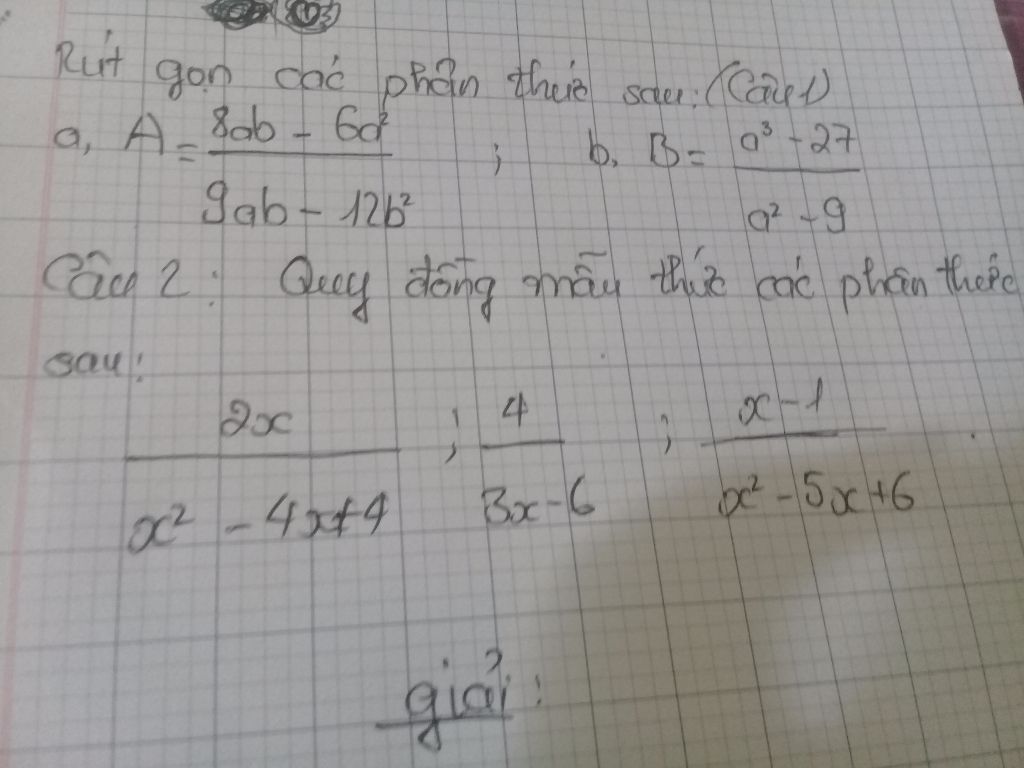 Rút gọn các phân thức sau: (Câu 1)
a, A = (8ab - 6a²)/(9ab - 12b²) ; b, B = (a³ - 27)/(a² - 9)
Câu 2: Quy đồng mẫu thức các phân thức
sau:
2x/(x² - 4x + 4) ; 4/(3x - 6) ; (x - 1)/(x² - 5x + 6) .
giải: